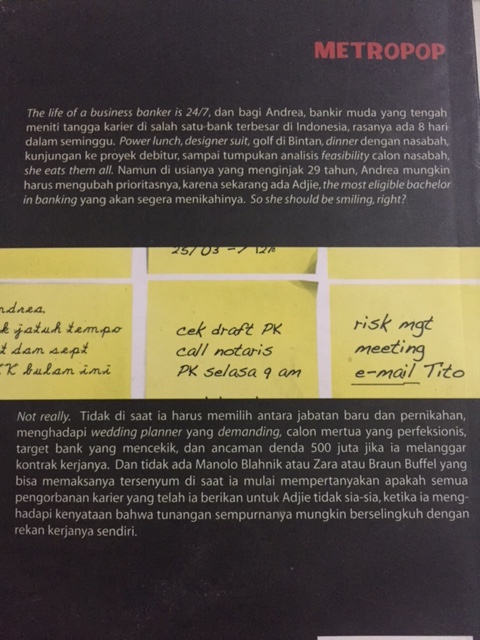 METROPOP
The life of a business banker is 24/7, dan bagi Andrea, bankir muda yang tengah
meniti tangga karier di salah satu bank terbesar di Indonesia, rasanya ada 8 hari
dalam seminggu. Power lunch, designer suit, golf di Bintan, dinner dengan nasabah,
kunjungan ke proyek debitur, sampai tumpukan analisis feasibility calon nasabah,
she eats them all. Namun di usianya yang menginjak 29 tahun, Andrea mungkin
harus mengubah prioritasnya, karena sekarang ada Adjie, the most eligible bachelor
in banking yang akan segera menikahinya. So she should be smiling, right?
25/03
jatuh tempo
dan sept
bulan ini
cek draft PK
call notaris
PK selasa 9 am
risk mgt
meeting
e-mail Tito
Not really. Tidak di saat ia harus memilih antara jabatan baru dan pernikahan,
menghadapi wedding planner yang demanding, calon mertua yang perfeksionis,
target bank yang mencekik, dan ancaman denda 500 juta jika ia melanggar
kontrak kerjanya. Dan tidak ada Manolo Blahnik atau Zara atau Braun Buffel yang
bisa memaksanya tersenyum di saat ia mulai mempertanyakan apakah semua
pengorbanan karier yang telah ia berikan untuk Adjie tidak sia-sia, ketika ia meng-
hadapi kenyataan bahwa tunangan sempurnanya mungkin berselingkuh dengan
rekan kerjanya sendiri.